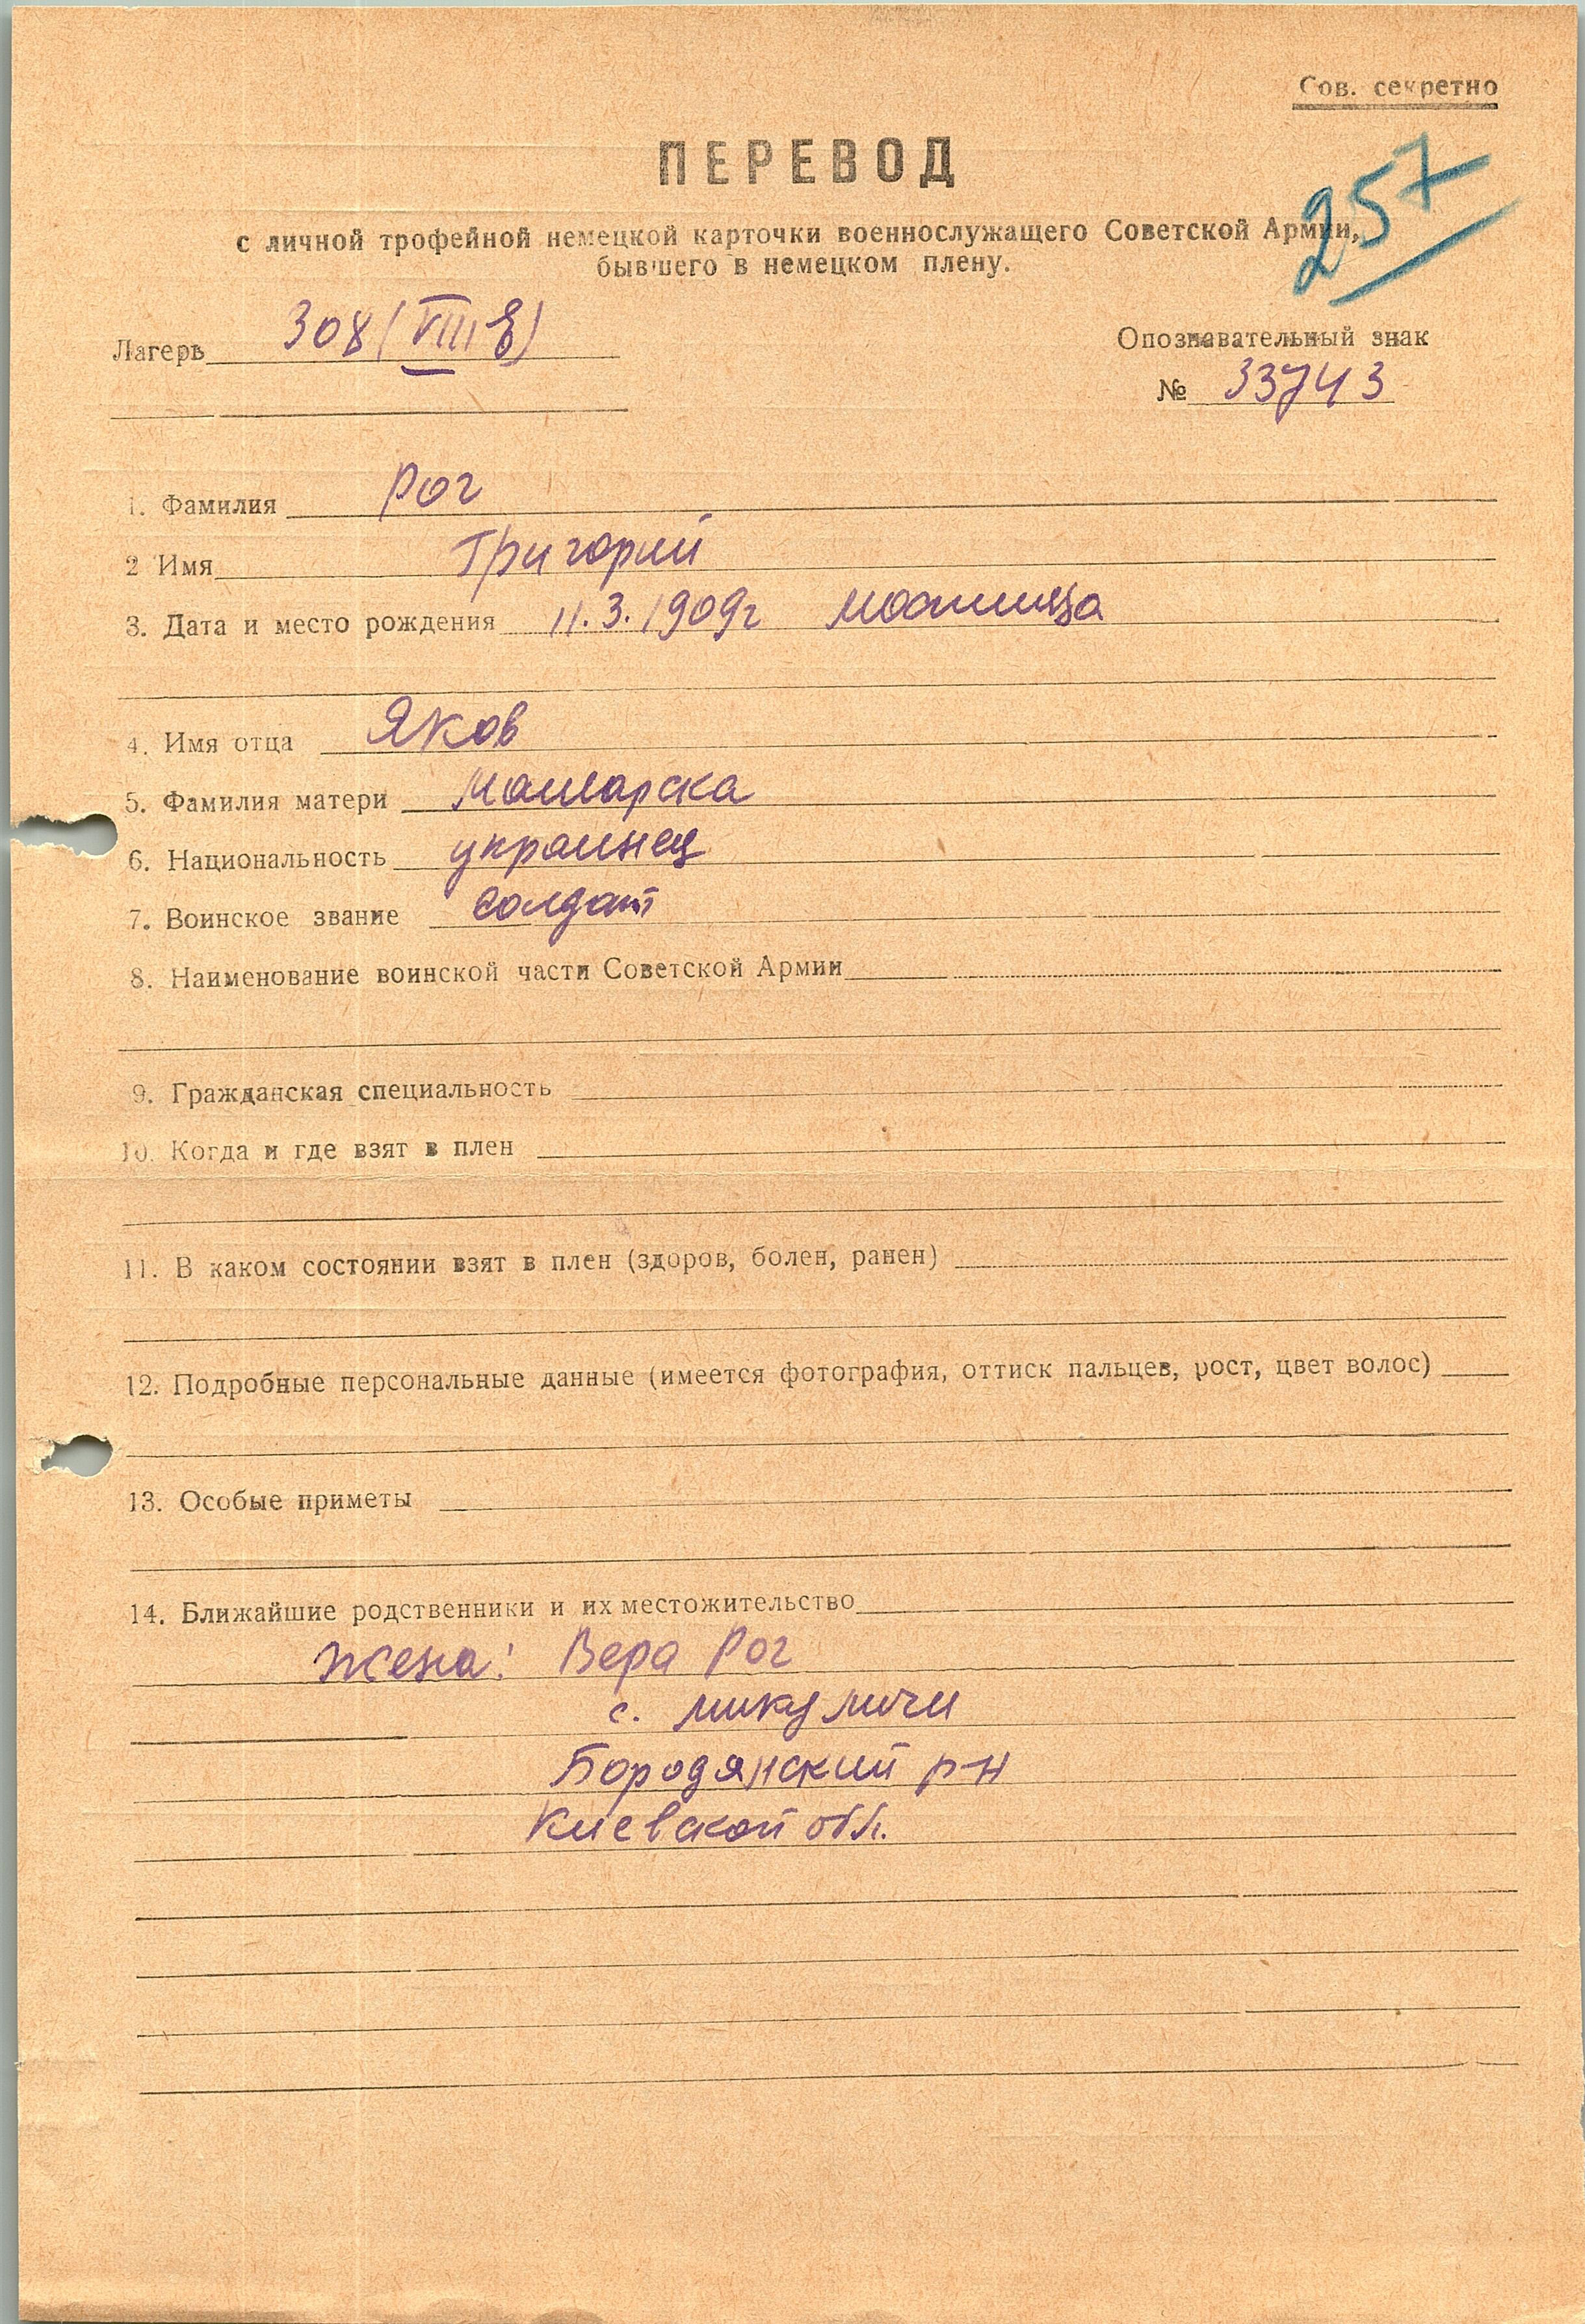 Сов. секретно
ПЕРЕВОД
257
с личной трофейной немецкой карточки военнослужащего Советской Армии,
бывшего в немецком плену.
Лагерь 308 (VIII E)
Опознавательный знак
№ 33743
1. Фамилия Рог
2 Имя Григорий
3. Дата и место рождения 11.3.1909г
4. Имя отца Яков
5. Фамилия матери
6. Национальность украинец
7. Воинское звание Солдат
8. Наименование воинской части Советской Армии
9. Гражданская специальность
10. Когда и где взят в плен
11. В каком состоянии взят в плен (здоров, болен, ранен)
12. Подробные персональные данные (имеется фотография, оттиск пальцев, рост, цвет волос)
13. Особые приметы
14. Ближайшие родственники и их местожительство
Жена: Вера Рог
с. Микуличи
Бородянский р-н
Киевской обл.